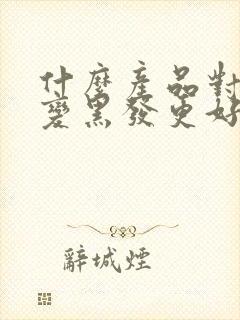 什麼產品對
變黑發更好
辭城煙